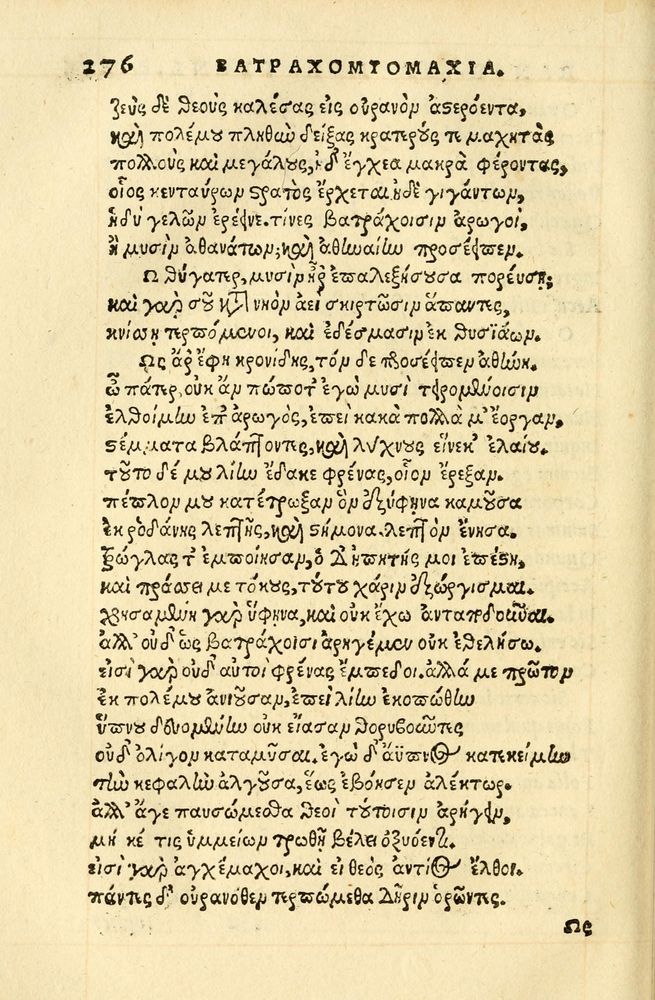 276 ΒΑΤΡΑΧΟΜΥΟΜΑΧΙΑ.
Ζεὺς δὲ θεοὺς καλέσας εἰς οὐρανὸν ἀστερόεντα,
καὶ πολέμου πληθὺν δείξας κρατερούς τε μαχητὰς
πολλοὺς καὶ μεγάλους, ἠδ' ἔγχεα μακρὰ φέροντας,
οἷος κενταύρων στρατὸς ἔρχεται ἠδὲ γιγάντων,
ἡδὺ γελῶν ἐρέεινε. τίνες βατράχοισιν ἀρωγοὶ,
ἢ μυσὶν ἀθανάτων; καὶ ἀθηναίην προσέειπεν.
Ω θύγατερ, μυσὶν ἦρ ἐπαλεξήσουσα πορεύσῃ;
καὶ γὰρ σοῦ κατὰ νηὸν ἀεὶ σκιρτῶσιν ἅπαντες,
κνίσσῃ τερπόμενοι, καὶ ἐδέσμασιν ἐκ θυσϊάων.
Ως ἄρ' ἔφη κρονίδης, τὸν δὲ προσέειπεν ἀθήνη.
ὦ πάτερ, οὐκ ἂν πώποτ' ἐγὼ μυσὶ τειρομένοισιν
ἐλθοίμην ἐπαρωγὸς, ἐπεὶ κακὰ πολλὰ μ' ἔοργαν,
στέμματα βλάπτοντες, καὶ λύχνους εἵνεκ' ἐλαίου.
τοῦτο δέ μου λίην ἔδακε φρένας, οἷον ἔρεξαν.
πέπλον μου κατέτρωξαν ὃν ἐξύφηνα καμοῦσα
ἐκ ῥοδάνης λεπτῆς, καὶ στήμονα λεπτὸν ἔνησα.
τρώγλας τ' ἐμποίησαν, ὁ δ' ἠπητής μοι ἐπέστη,
καὶ πράσσει με τόκους, τούτου χάριν ἐξώργισμαι.
χρησαμένη γὰρ ὕφηνα, καὶ οὐκ ἔχω ἀνταποδοῦναι.
ἀλλ' οὐδ' ὣς βατράχοισι ἀρηγέμεν οὐκ ἐθελήσω.
εἰσὶ γὰρ οὐδ' αὐτοὶ φρένας ἔμπεδοι. ἀλλά με πρῶτον
ἐκ πολέμου ἀνιοῦσαν, ἐπεὶ λίην ἐκοπώθην
ὕπνου δευομένην οὐκ εἴασαν θορυβοῦντες
οὐδ' ὀλίγον καταμῦσαι. ἐγὼ δ' ἄϋπνος κατεκείμην
τὴν κεφαλὴν ἀλγοῦσα, ἕως ἐβόησεν ἀλέκτωρ.
ἀλλ' ἄγε παυσώμεσθα θεοὶ τούτοισιν ἀρήγειν,
μή κέ τις ὑμμείων τρωθῇ βέλει ὀξυόεντι.
εἰσὶ γὰρ ἀγχέμαχοι, καὶ εἰ θεὸς ἀντίος ἔλθοι.
πάντες δ' οὐρανόθεν τερπώμεθα δῆριν ὁρῶντες.
Ως